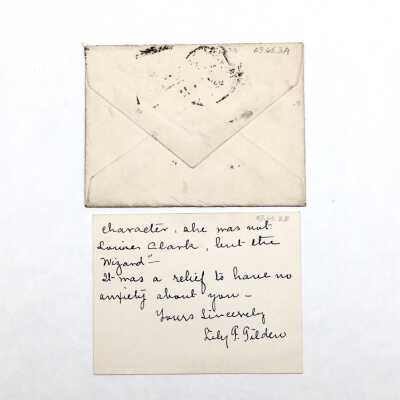 character, she was not
Clark, but the
Wizard"
It was a relief to have no
anxiety about you —
Yours Sincerely
Lily F. Tilden